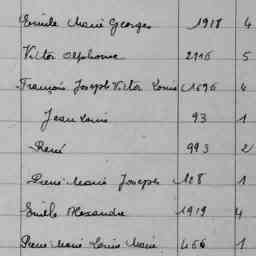 Emile Marie Georges 1918 4
Victor Alphonse 2916 5
François Joseph Victor Louis 1696 4
Jean Louis 93 1
René 993 2
Pierre Marie Joseph 128 1
Emile Alexandre 1919 4
Pierre Marie Louis Marie 456 1